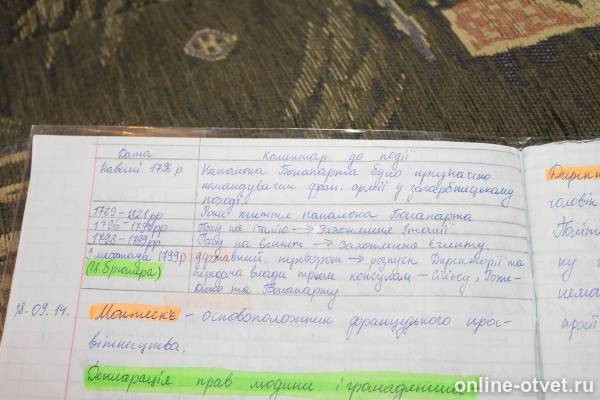 Дата Коментар до події
Навесні 1796 р Наполеона Бонапарта було призначено
командувачем фран. армії у загарбницькому
поході
1769-1821рр Роки життя Наполеона Бонапарта
1796-1797рр Похід на Італію → Захоплення Італії
1798-1799рр Похід на Єгипет → Захоплення Єгипту
9 листопада 1799р державний переворот → розпуск Директорії та
(18 брюмера) передача влади трьом консулам -
та Бонапарту
18.09.14. Монтеск'є - основоположник французького прос-
вітництва.
Декларація прав людини і громадянина
Дирек
чоловік
Політ
ку
нема
online-otvet.ru